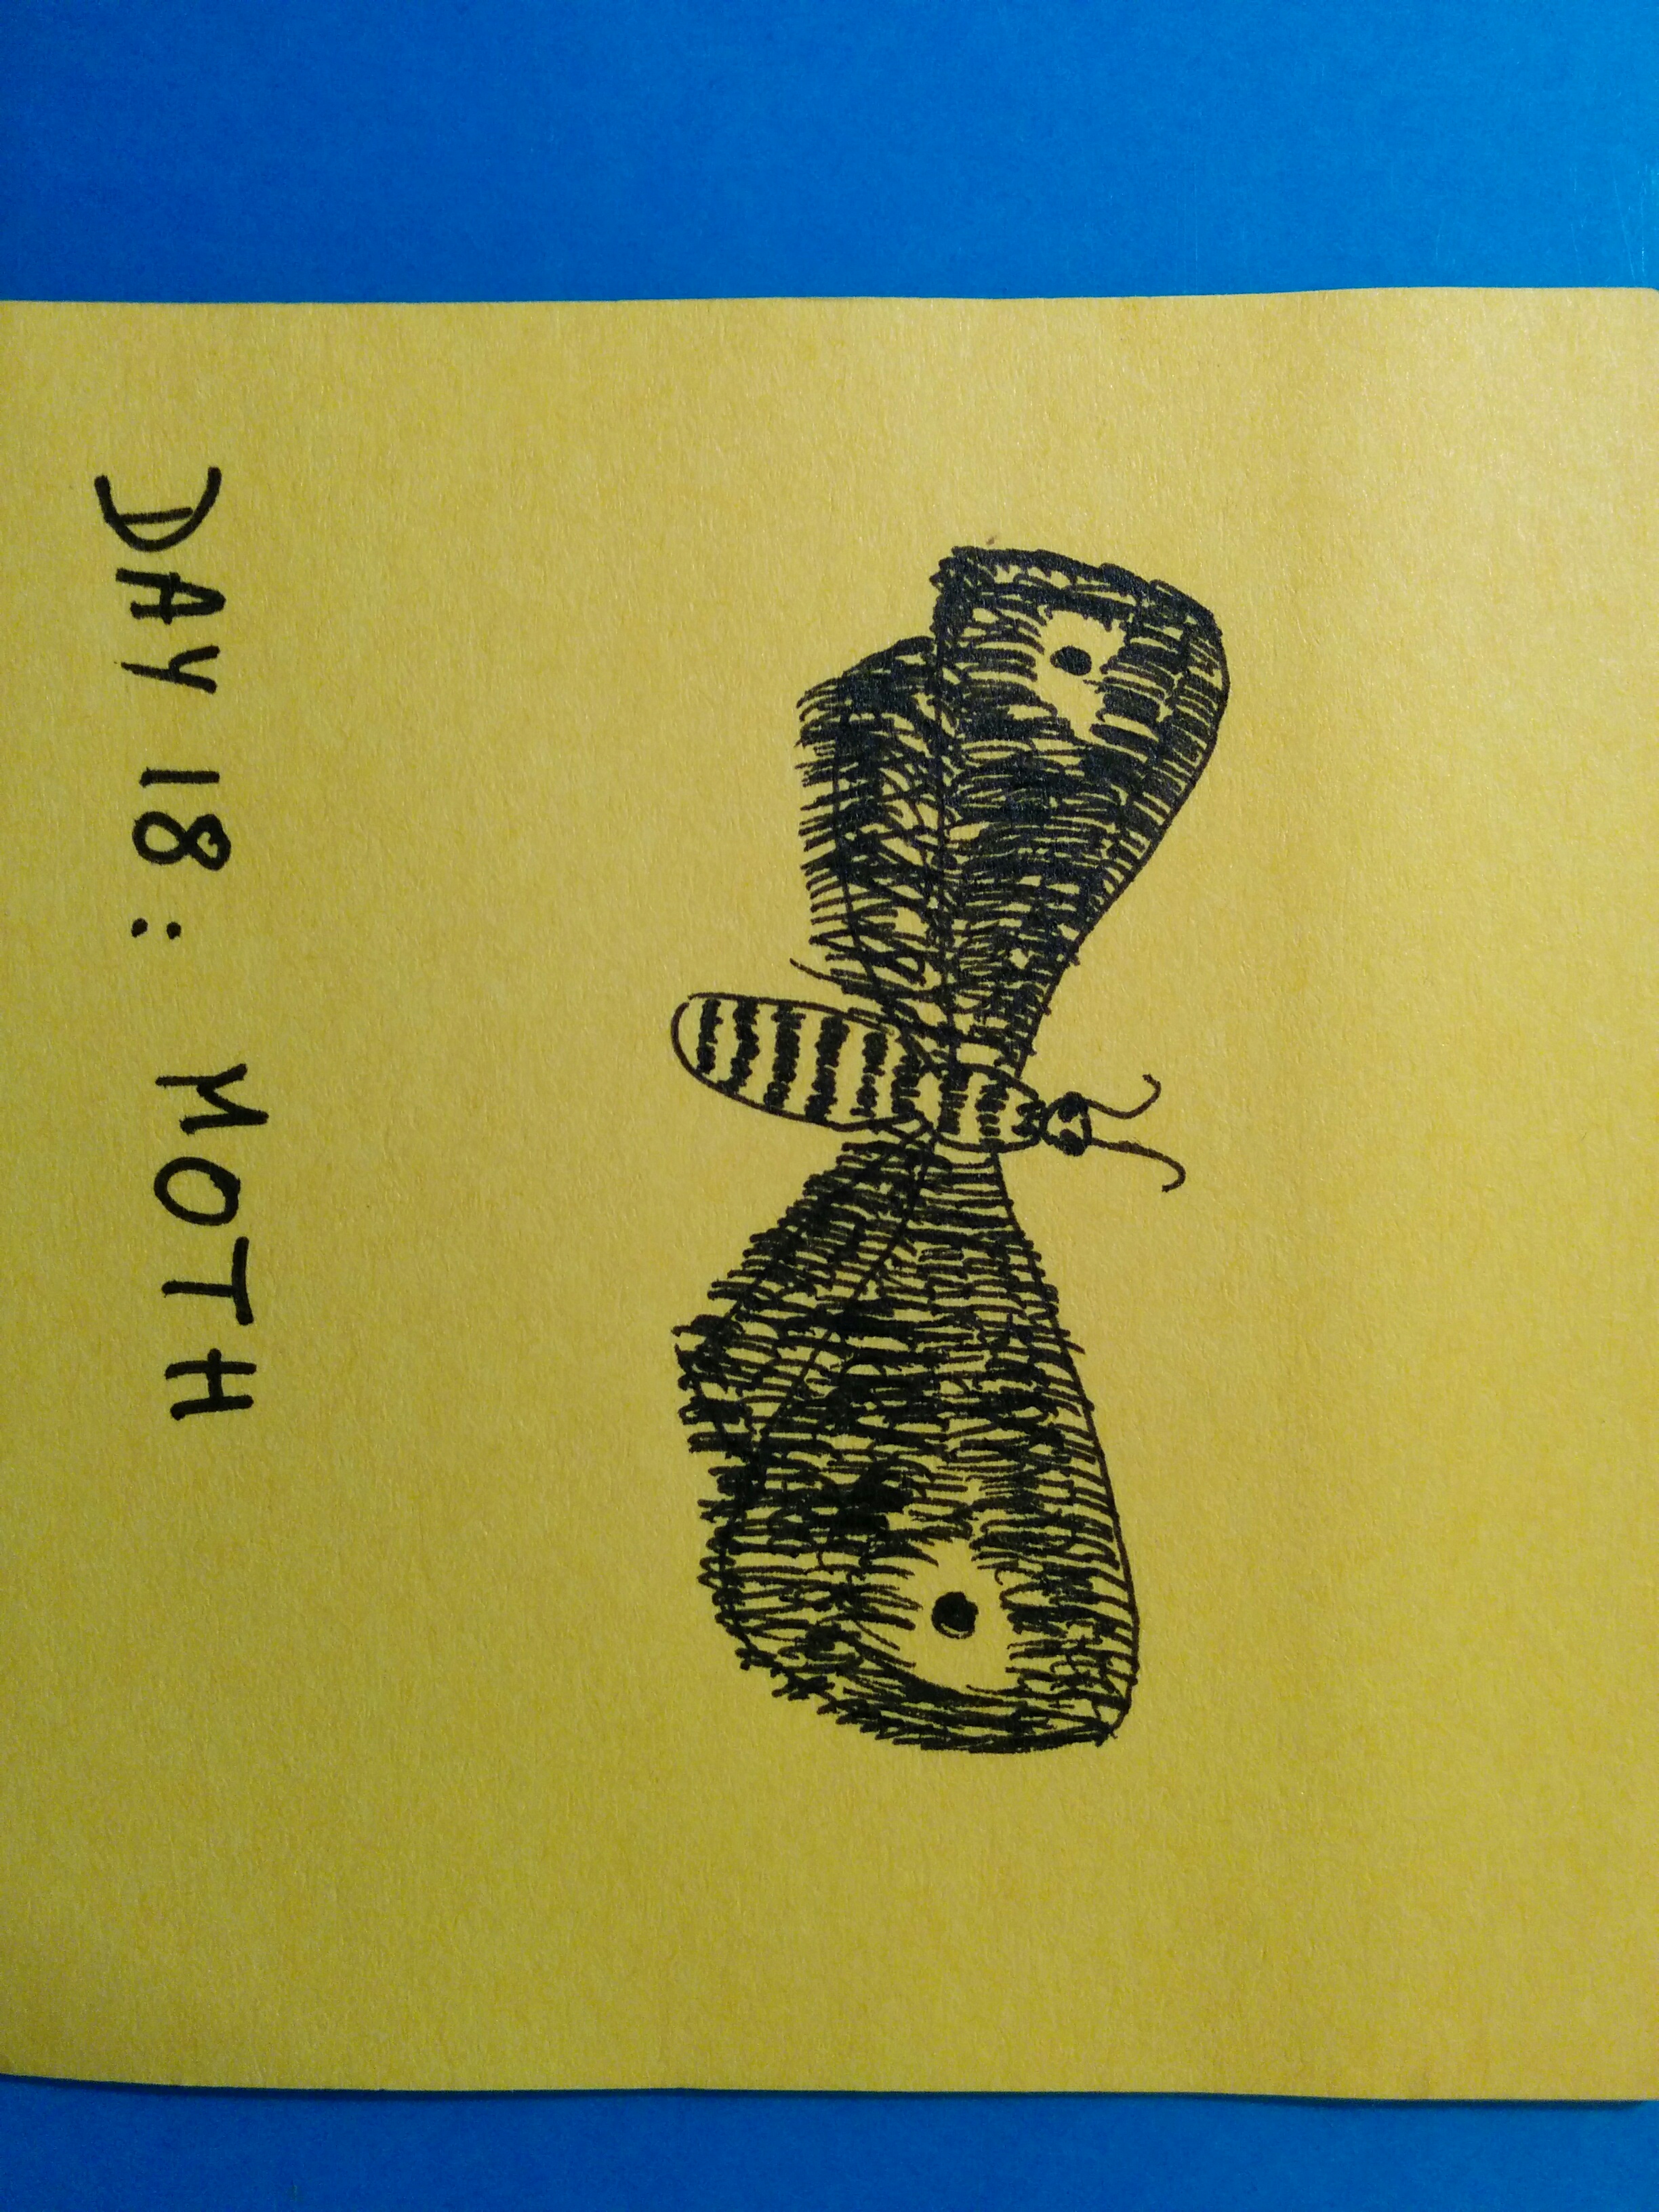 DAY 18: MOTH